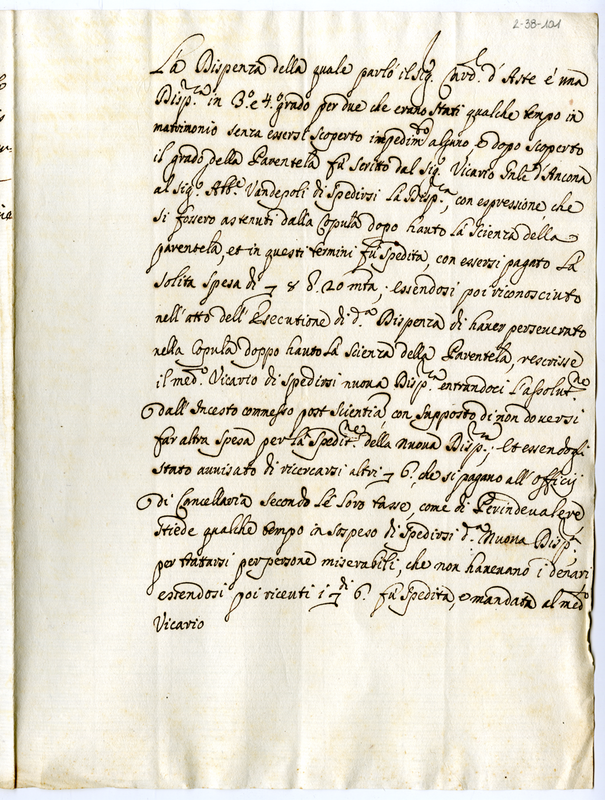 2-38-101
La Dispenza della quale parlò il Sig. Card. d'Aste è una
Disp.ª in 3.º e 4.º grado per due che erano stati qualche tempo in
matrimonio senza essersi scoperto impedim.to alcuno e dopo scoperto
il grado della Parentela fù scritto dal Sig. Vicario Gnle d'Ancona
al Sig. Ab.e Vandepoli di spedirsi la Disp.ª, con espressione che
si fossero astenuti dalla Copula dopo hauto la scienza della
parentela, et in questi termini fù spedita con essersi pagato la
solita spesa di 20 mta, essendosi poi riconosciuto
nell'atto dell'Esecutione di d.ª Dispenza di haver perseverato
nella Copula doppo hauto la scienza della Parentela, rescrisse
il med.º Vicario di spedirsi nuova Disp.ª entrandoci l'assolut.ne
dall'Incesto commesso post scientia, con supposto di non doversi
far altra spesa per la spedit.ne della nuova Disp.ª, et essendogli
stato avvisato di ricercarsi altri 6. che si pagano all'Officij
di Cancellaria secondo le loro tasse, come di Perinde valere
stiede qualche tempo in sospeso di spedirsi d.ª Nuova Disp.ª
per trattarsi per persone miserabili, che non havevano i denari
essendosi poi riceuti i d.i 6. fù spedita, e mandata al med.º
Vicario